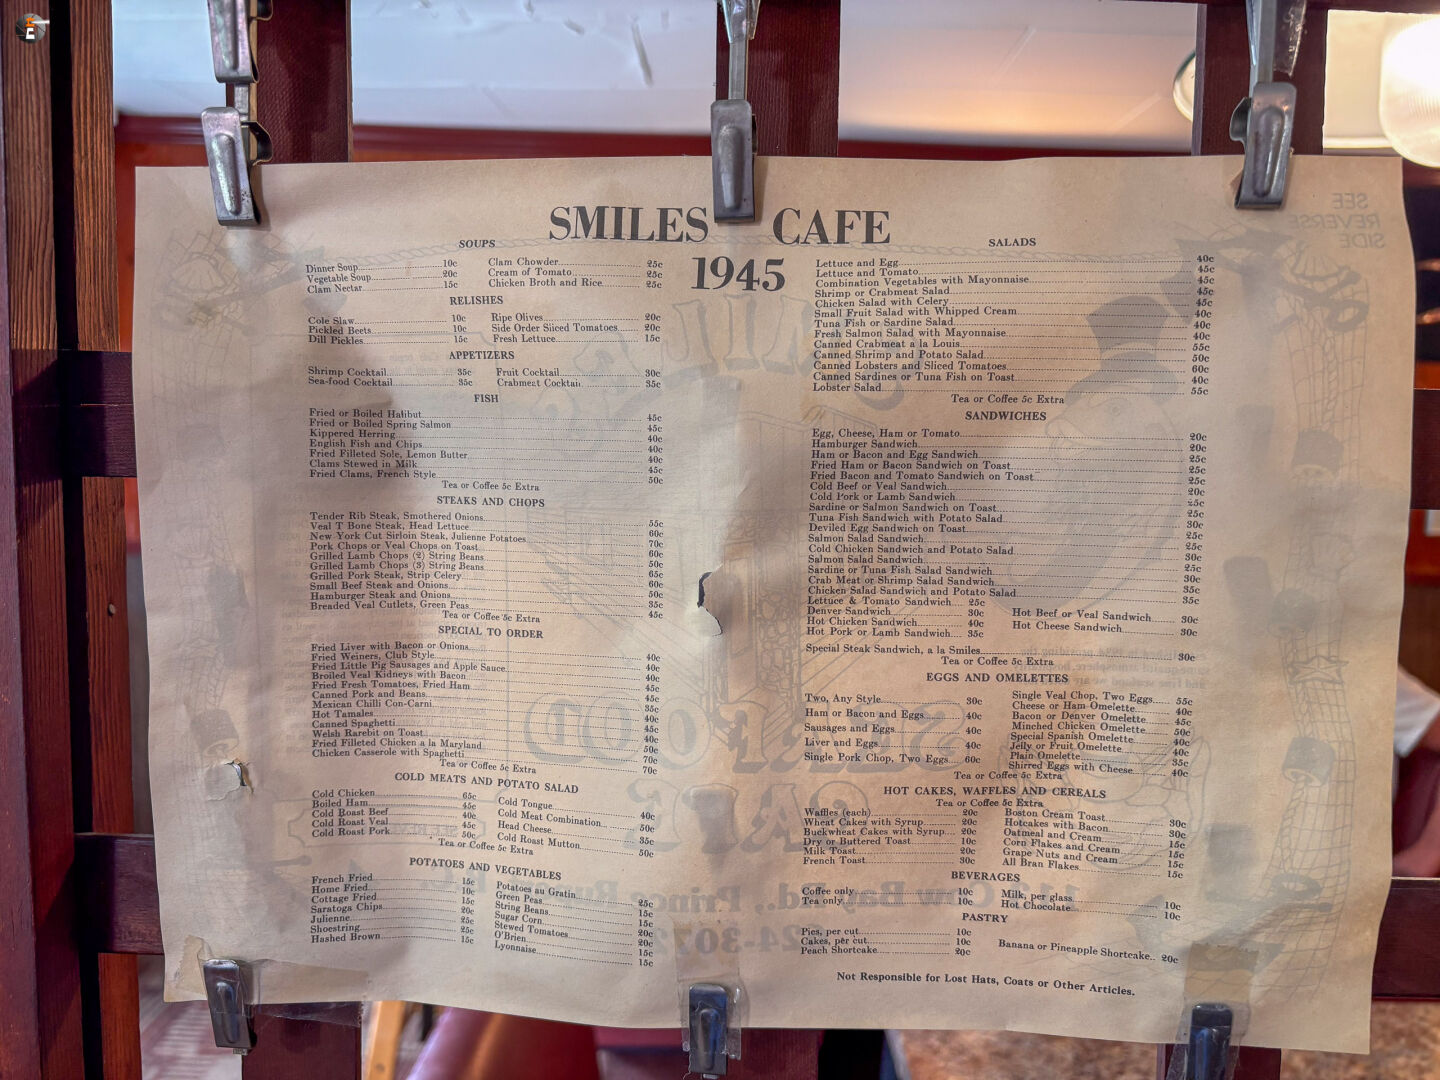 SMILES CAFE
1945
SOUPS
Dinner Soup 10c
Vegetable Soup 20c
Clam Nectar 15c
Clam Chowder 25c
Cream of Tomato 25c
Chicken Broth and Rice 25c
RELISHES
Cole Slaw 10c
Pickled Beets 10c
Dill Pickles 15c
Ripe Olives 20c
Side Order Sliced Tomatoes 20c
Fresh Lettuce 15c
APPETIZERS
Shrimp Cocktail 35c
Sea-food Cocktail 35c
Fruit Cocktail 30c
Crabmeat Cocktail 35c
FISH
Fried or Boiled Halibut 45c
Fried or Boiled Spring Salmon 45c
Kippered Herring 40c
English Fish and Chips 40c
Fried Filleted Sole, Lemon Butter 40c
Clams Stewed in Milk 45c
Fried Clams, French Style 50c
Tea or Coffee 5c Extra
STEAKS AND CHOPS
Tender Rib Steak, Smothered Onions 55c
Veal T Bone Steak, Head Lettuce 60c
New York Cut Sirloin Steak, Julienne Potatoes 70c
Pork Chops or Veal Chops on Toast 60c
Grilled Lamb Chops (2) String Beans 50c
Grilled Lamb Chops (3) String Beans 65c
Grilled Pork Steak, Strip Celery 60c
Small Beef Steak and Onions 50c
Hamburger Steak and Onions 35c
Breaded Veal Cutlets, Green Peas 45c
Tea or Coffee 5c Extra
SPECIAL TO ORDER
Fried Liver with Bacon or Onions 40c
Fried Weiners, Club Style 40c
Fried Little Pig Sausages and Apple Sauce 40c
Broiled Veal Kidneys with Bacon 45c
Fried Fresh Tomatoes, Fried Ham 45c
Canned Pork and Beans 35c
Mexican Chilli Con-Carni 40c
Hot Tamales 45c
Canned Spaghetti 40c
Welsh Rarebit on Toast 50c
Fried Filleted Chicken a la Maryland 70c
Chicken Casserole with Spaghetti 70c
Tea or Coffee 5c Extra
COLD MEATS AND POTATO SALAD
Cold Chicken 65c
Boiled Ham 45c
Cold Roast Beef 40c
Cold Roast Veal 45c
Cold Roast Pork 50c
Cold Tongue 40c
Cold Meat Combination 50c
Head Cheese 35c
Cold Roast Mutton 50c
Tea or Coffee 5c Extra
POTATOES AND VEGETABLES
French Fried 15c
Home Fried 10c
Cottage Fried 15c
Saratoga Chips
Julienne 20c
Shoestring 25c
Hashed Brown 15c
Potatoes au Gratin 25c
Green Peas 15c
String Beans 15c
Sugar Corn 20c
Stewed Tomatoes 20c
O'Brien 15c
Lyonnaise 15c
SALADS
Lettuce and Egg 40c
Lettuce and Tomato 45c
Combination Vegetables with Mayonnaise 45c
Shrimp or Crabmeat Salad 45c
Chicken Salad with Celery 45c
Small Fruit Salad with Whipped Cream 40c
Tuna Fish or Sardine Salad 40c
Fresh Salmon Salad with Mayonnaise 40c
Canned Crabmeat a la Louis 55c
Canned Shrimp and Potato Salad 50c
Canned Lobsters and Sliced Tomatoes 60c
Canned Sardines or Tuna Fish on Toast 40c
Lobster Salad 55c
Tea or Coffee 5c Extra
SANDWICHES
Egg, Cheese, Ham or Tomato 20c
Hamburger Sandwich 20c
Ham or Bacon and Egg Sandwich 25c
Fried Ham or Bacon Sandwich on Toast 25c
Fried Bacon and Tomato Sandwich on Toast 25c
Cold Beef or Veal Sandwich 20c
Cold Pork or Lamb Sandwich 25c
Sardine or Salmon Sandwich on Toast 25c
Tuna Fish Sandwich with Potato Salad 30c
Deviled Egg Sandwich on Toast 25c
Salmon Salad Sandwich 25c
Cold Chicken Sandwich and Potato Salad 30c
Salmon Salad Sandwich 25c
Sardine or Tuna Fish Salad Sandwich 30c
Crab Meat or Shrimp Salad Sandwich 35c
Chicken Salad Sandwich and Potato Salad 35c
Lettuce & Tomato Sandwich 25c
Denver Sandwich 30c
Hot Chicken Sandwich 40c
Hot Pork or Lamb Sandwich 35c
Hot Beef or Veal Sandwich 30c
Hot Cheese Sandwich 30c
Special Steak Sandwich, a la Smiles 30c
Tea or Coffee 5c Extra
EGGS AND OMELETTES
Two, Any Style 30c
Ham or Bacon and Eggs 40c
Sausages and Eggs 40c
Liver and Eggs 40c
Single Pork Chop, Two Eggs 60c
Single Veal Chop, Two Eggs 55c
Cheese or Ham Omelette 40c
Bacon or Denver Omelette 45c
Minched Chicken Omelette 50c
Special Spanish Omelette 40c
Jelly or Fruit Omelette 40c
Plain Omelette 35c
Shirred Eggs with Cheese 40c
Tea or Coffee 5c Extra
HOT CAKES, WAFFLES AND CEREALS
Tea or Coffee 5c Extra
Waffles (each) 20c
Wheat Cakes with Syrup 20c
Buckwheat Cakes with Syrup 20c
Dry or Buttered Toast 10c
Milk Toast 20c
French Toast 30c
Boston Cream Toast 30c
Hotcakes with Bacon 30c
Oatmeal and Cream 15c
Corn Flakes and Cream 15c
Grape Nuts and Cream 15c
All Bran Flakes 15c
BEVERAGES
Coffee only 10c
Tea only 10c
Milk, per glass 10c
Hot Chocolate 10c
PASTRY
Pies, per cut 10c
Cakes, per cut 10c
Peach Shortcake 20c
Banana or Pineapple Shortcake 20c
Not Responsible for Lost Hats, Coats or Other Articles.
SEE
REVERSE
SIDE